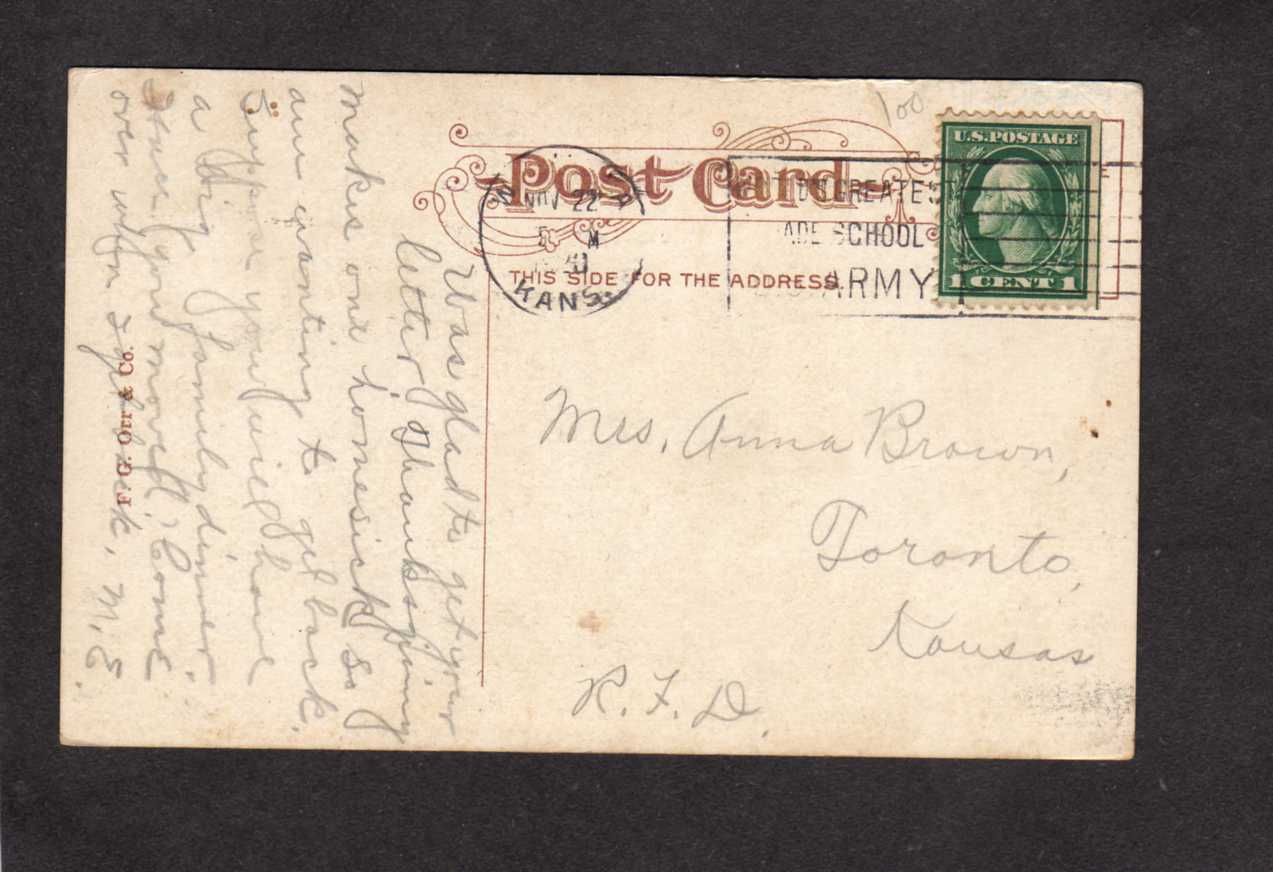 100
U.S.POSTAGE
1 CENT 1
Post Card
THIS SIDE FOR THE ADDRESS
NOV 22
M
KANS
GREATES
SCHOOL
ARMY
Was glad to get your
letter, Thanksgiving
makes one homesick, so
am wanting to get back.
Suppose you will have
a big family dinner.
Have you moved, Come
over when I get back, M.E.
F. G. Orr & Co.
Mrs. Anna Brown,
Toronto,
Kansas
R.F.D.